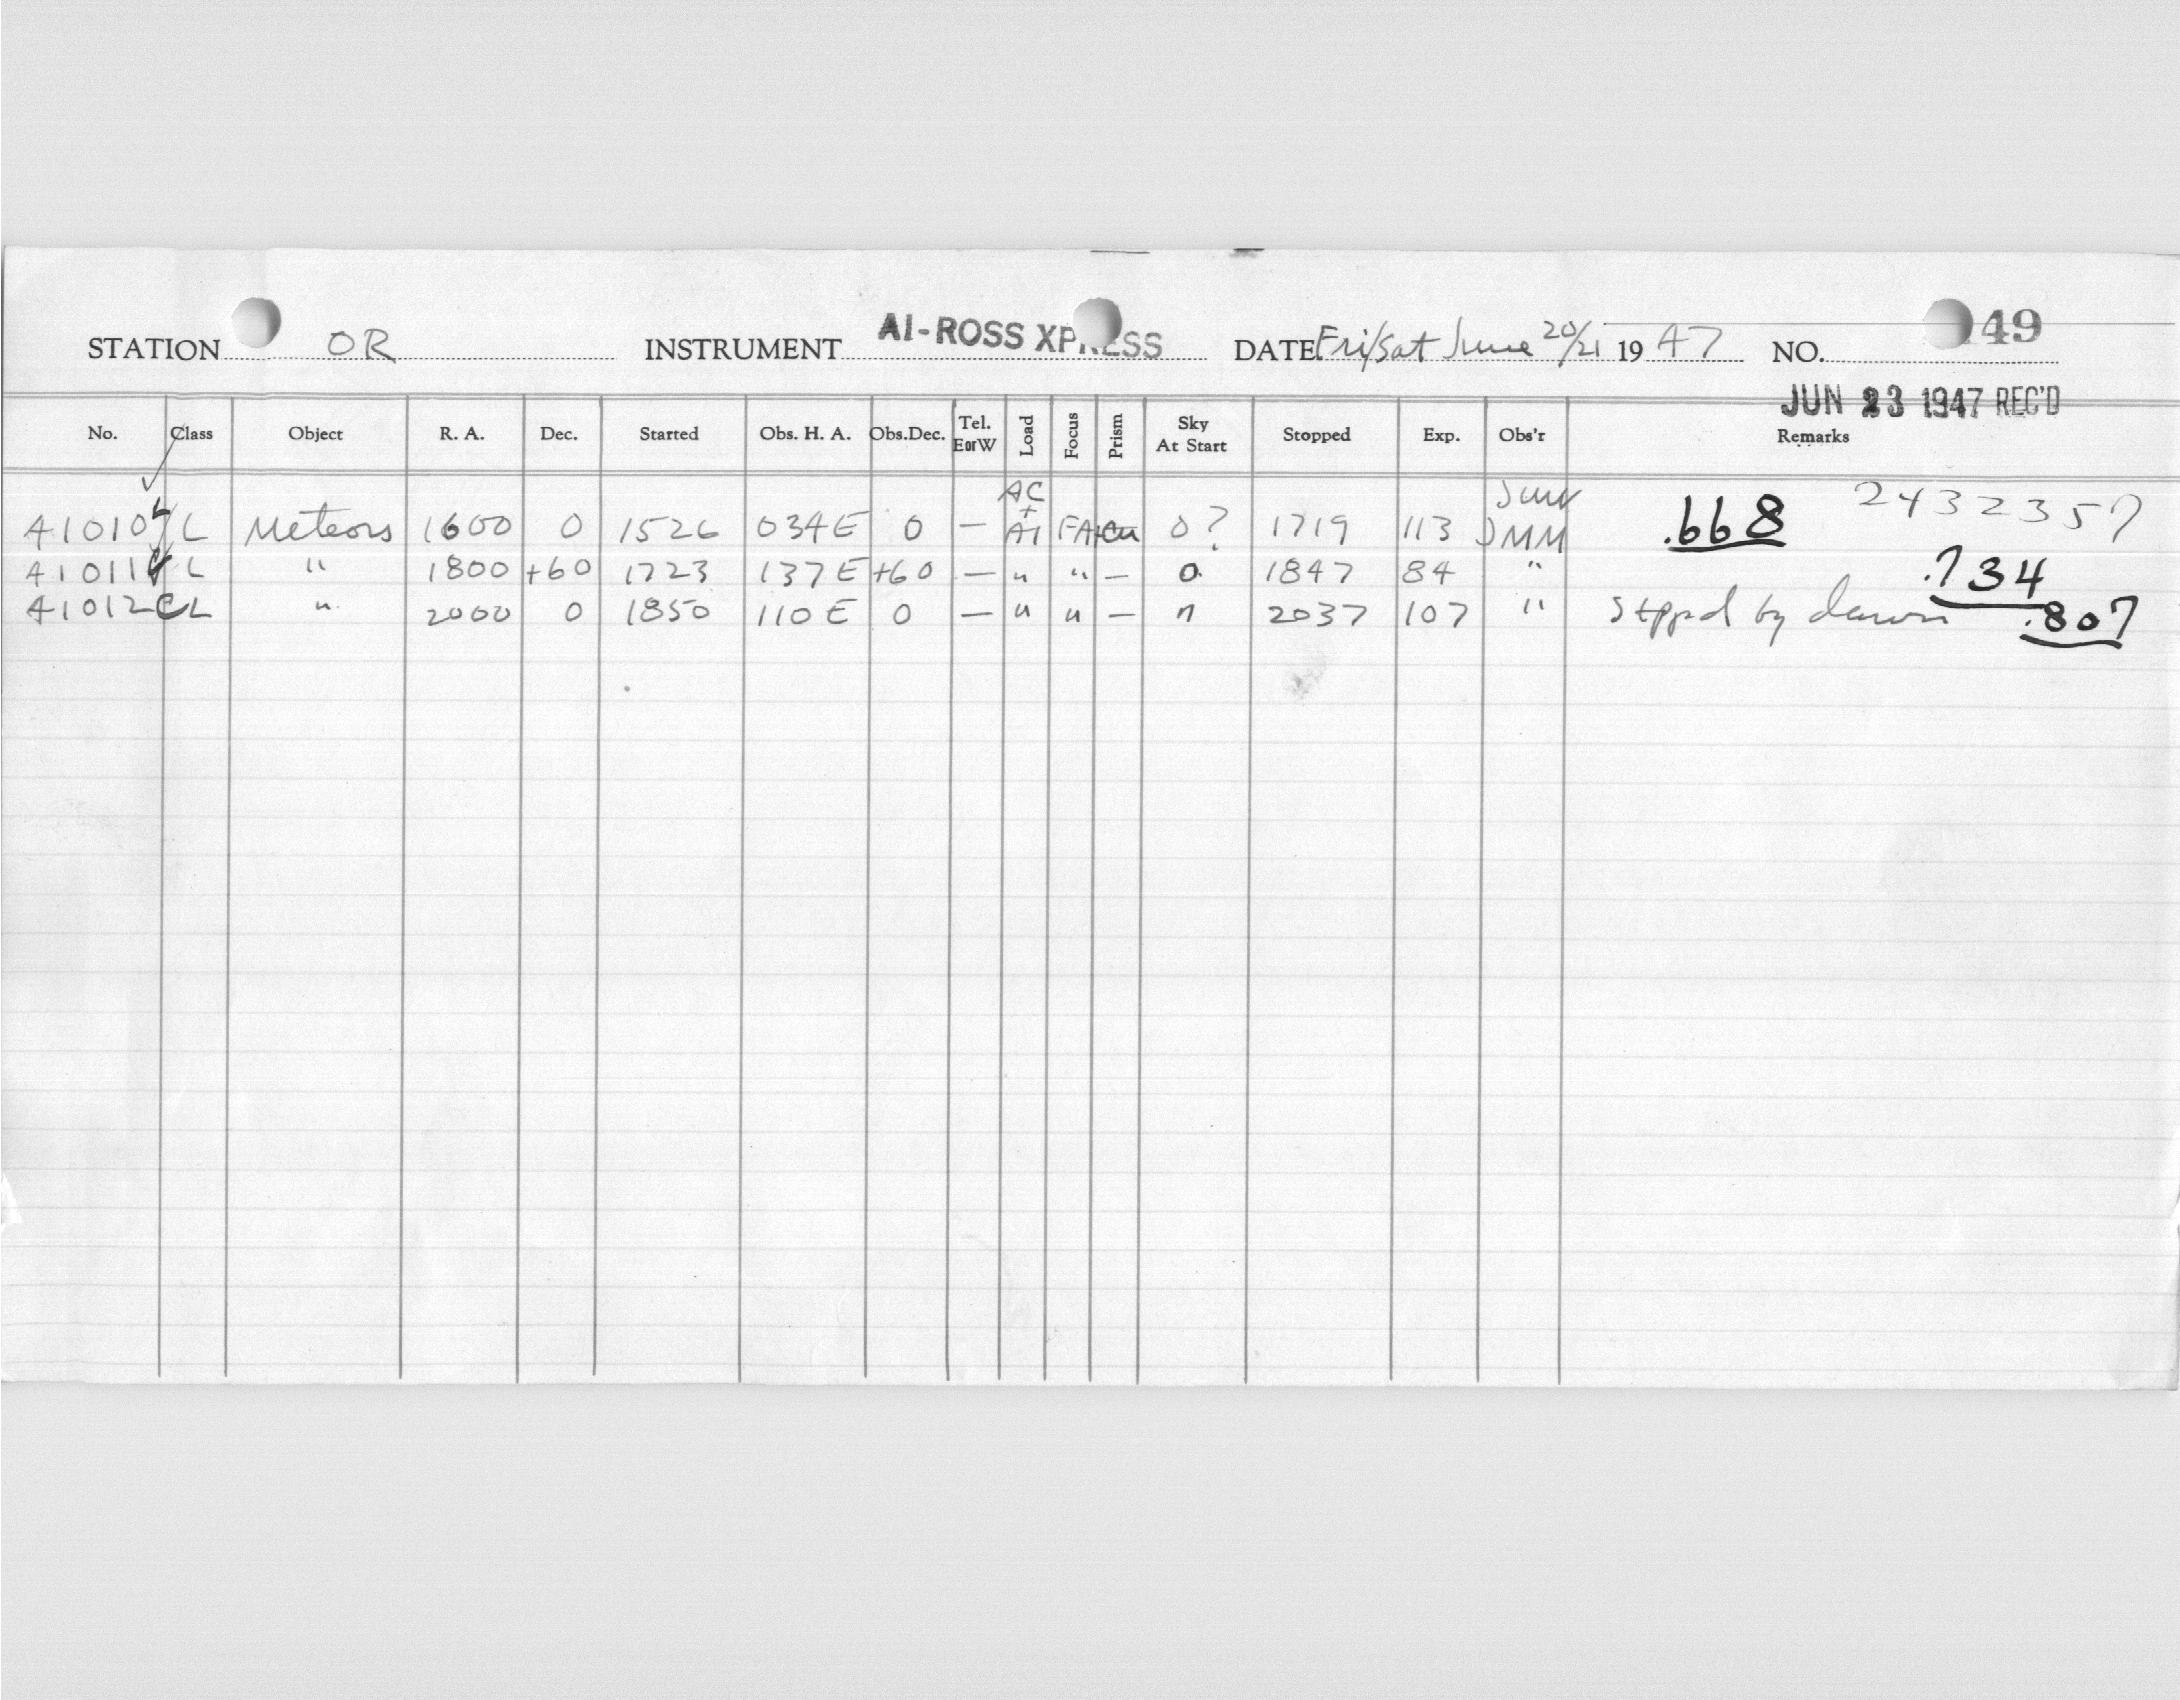 STATION OR INSTRUMENT AI-ROSS XPRESS DATE Fri/Sat June 20/21 1947 NO. 49
JUN 23 1947 REC'D
No. Class Object R. A. Dec. Started Obs. H. A. Obs.Dec. Tel. EorW Load Focus Prism Sky At Start Stopped Exp. Obs'r Remarks
41010 L Meteors 1600 0 1526 034E 0 — AC + AI FA 0? 1719 113 DMM .668 2432357
41011 L " 1800 +60 1723 137E +60 — " " — 0 1847 84 " .734
41012 CL " 2000 0 1850 110E 0 — " " — " 2037 107 " Stppd by dawn .807